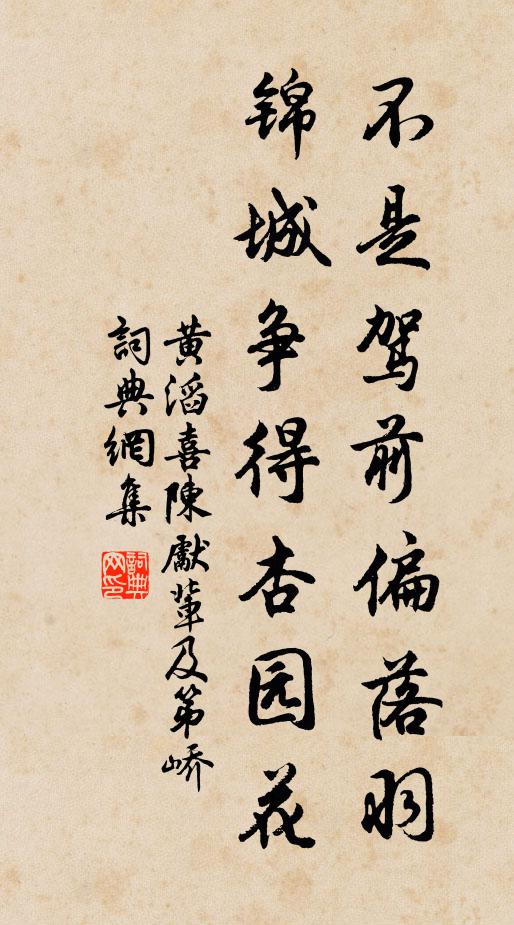 不是驾前偏落羽
锦城争得杏园花
黄滔喜陳獻輩及第嶠
詞典網集
詞典網印